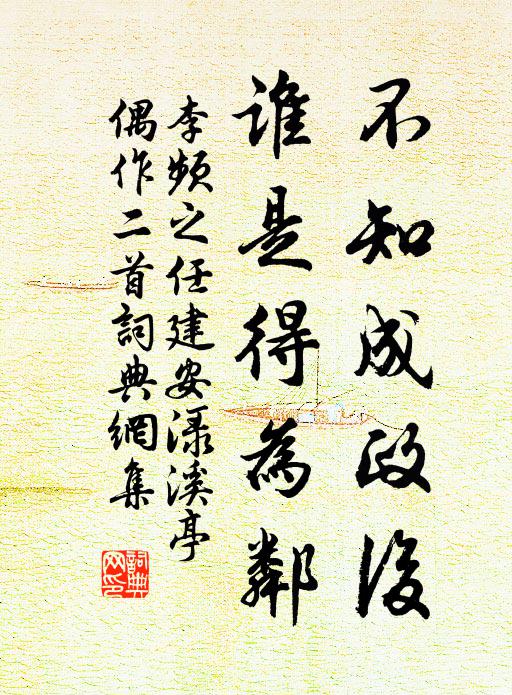 不知成政後
誰是得為鄰
李頻之任建安渌溪亭
偶作二首詞典網集
詞典
网印